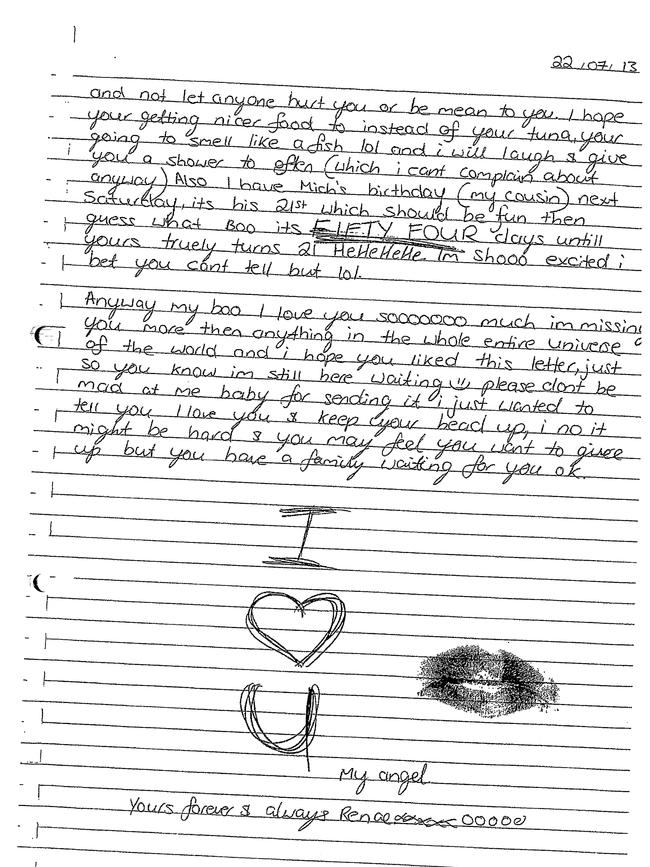 22/07/13
and not let anyone hurt you or be mean to you. I hope
your getting nicer food to instead of your tuna, your
going to smell like a fish lol and i will laugh & give
you a shower to often (which i cant complain about
anyway) Also I have Mich's birthday (my cousin) next
Saturday, its his 21st which should be fun then
guess what Boo its FIFTY FOUR days untill
yours truely turns 21 HeHeHeHe. Im shooo excited i
bet you cant tell but lol.
Anyway my boo I love you sooooooo much im missing
you more then anything in the whole entire universe
of the world and i hope you liked this letter, just
so you know im still here waiting please dont be
mad at me baby for sending it i just wanted to
tell you I love you & keep your head up, i no it
might be hard & you may feel you want to give
up but you have a family waiting for you ok.
I
U
My angel
Yours forever & always Renae ooooo